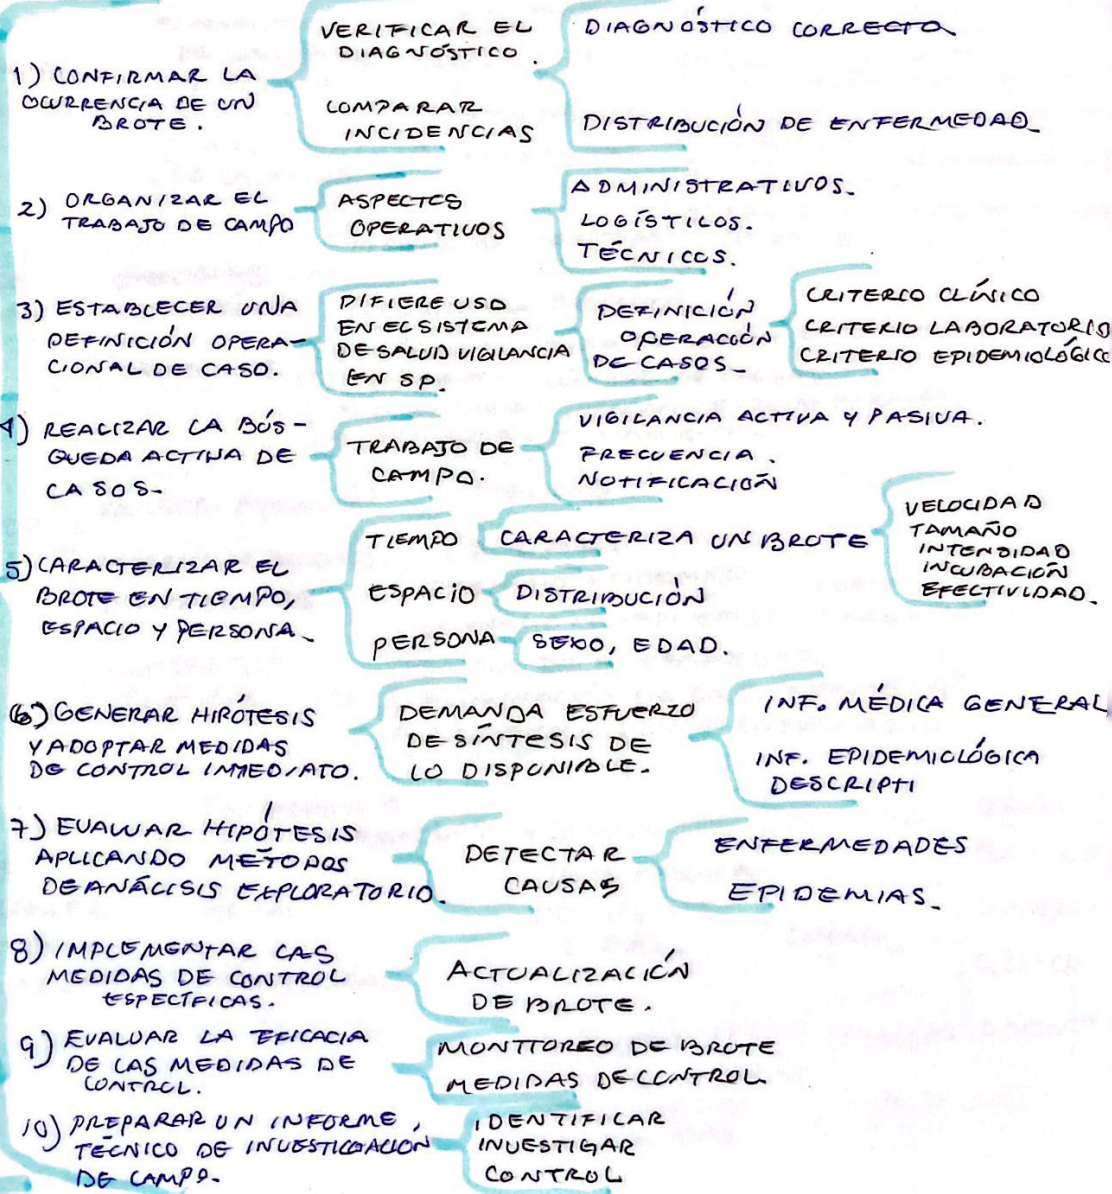 1) CONFIRMAR LA
OCURRENCIA DE UN
BROTE.
VERIFICAR EL
DIAGNÓSTICO.
COMPARAR
INCIDENCIAS
DIAGNÓSTICO CORRECTO
DISTRIBUCIÓN DE ENFERMEDAD
2) ORGANIZAR EL
TRABAJO DE CAMPO
ASPECTOS
OPERATIVOS
ADMINISTRATIVOS.
LOGÍSTICOS.
TÉCNICOS.
3) ESTABLECER UNA
DEFINICIÓN OPERA-
CIONAL DE CASO.
DIFIERE USO
EN EL SISTEMA
DE SALUD VIGILANCIA
EN SP.
DEFINICIÓN
OPERACIÓN
DE CASOS
CRITERIO CLÍNICO
CRITERIO LABORATORIO
CRITERIO EPIDEMIOLÓGICO
4) REALIZAR LA BÚS-
QUEDA ACTIVA DE
CASOS
TRABAJO DE
CAMPO.
VIGILANCIA ACTIVA Y PASIVA.
FRECUENCIA.
NOTIFICACIÓN
5) CARACTERIZAR EL
BROTE EN TIEMPO,
ESPACIO Y PERSONA
TIEMPO
CARACTERIZA UN BROTE
VELOCIDAD
TAMAÑO
INTENSIDAD
INCUBACIÓN
EFECTIVIDAD.
ESPACIO
DISTRIBUCIÓN
PERSONA
SEXO, EDAD.
6) GENERAR HIPÓTESIS
Y ADOPTAR MEDIDAS
DE CONTROL INMEDIATO.
DEMANDA ESFUERZO
DE SÍNTESIS DE
LO DISPONIBLE.
INF. MÉDICA GENERAL
INF. EPIDEMIOLÓGICA
DESCRIPTI
7) EVALUAR HIPÓTESIS
APLICANDO METODOS
DE ANÁLISIS EXPLORATORIO.
DETECTAR
CAUSAS
ENFERMEDADES
EPIDEMIAS
8) IMPLEMENTAR LAS
MEDIDAS DE CONTROL
ESPECÍFICAS.
ACTUALIZACIÓN
DE BROTE.
9) EVALUAR LA EFICACIA
DE LAS MEDIDAS DE
CONTROL.
MONITOREO DE BROTE
MEDIDAS DE CONTROL
10) PREPARAR UN INFORME
TÉCNICO DE INVESTIGACIÓN
DE CAMPO.
IDENTIFICAR
INVESTIGAR
CONTROL